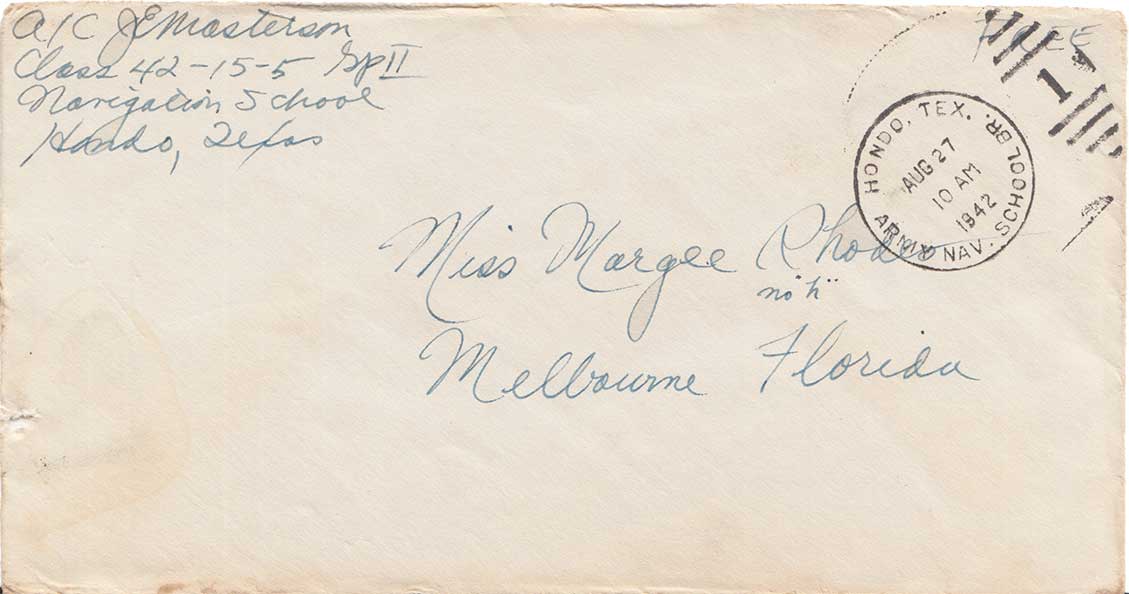 A/C JE Masterson
Class 42-15-5 Gp II
Navigation School
Hondo, Texas
FREE
1
HONDO, TEX.
AUG 27
10 AM
1942
ARMY NAV. SCHOOL BR.
Miss Margee Rhodes
no "h"
Melbourne Florida